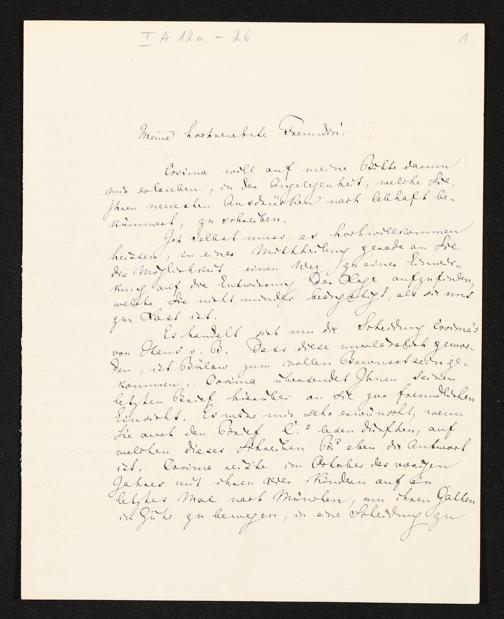 I A 12a - 26
1
Meine hochverehrte Freundin!
Cosima will auf meine Bitte darum
mir erlauben, in der Angelegenheit, welche Sie,
Ihren neuesten Ausdrücken nach lebhaft be-
kümmert, zu schreiben.
Ich selbst muss es hochwillkommen
heissen, in einer Mittheilung gerade an Sie
die Möglichkeit einen Weg zu einer Einwir-
kung auf die Entwirrung der Lage aufzufinden,
welche Sie nicht minder beängstigt, als sie uns
zur Last ist.
Es handelt sich um die Scheidung Cosima's
von Hans v. B. Dass diese unerlässlich gewor-
den, ist Bülow zum vollen Bewusstsein ge-
kommen. Cosima übersendet Ihnen seinen
letzten Brief hierüber an Sie zur freundlichen
Einsicht. Es wäre mir sehr erwünscht, wenn
Sie auch den Brief C.'s lesen dürften, auf
welchen dieses Schreiben B's eben die Antwort
ist. Cosima reiste im October des vorigen
Jahres mit ihren vier Kindern auf ein
letztes Mal nach München, um ihren Gatten
in Güte zu bewegen, in eine Scheidung zu